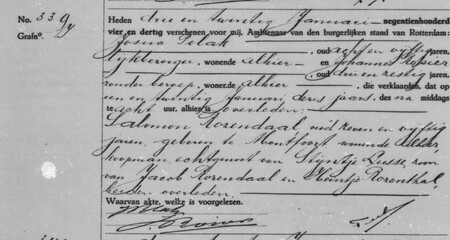 No. 53 9y
Grafn°.
Heden drie en twintig Januari negentienhonderd
vier en dertig verschenen voor mij, Ambtenaar van den burgerlijken stand van Rotterdam:
Josua Polak, oud acht en vijftig jaren,
lijkbezorger, wonende alhier en Johannes
zonder beroep, wonende alhier, die verklaarden, dat op
een en twintig Januari dezes jaars, des na middags
acht uur, alhier is overleden:
Salmon Rozendaal, oud zeven en vijftig
jaren, geboren te Montfoort, wonende alhier,
koopman, echtgenoot van Stijntje, zoon
van Jacob Rozendaal en Rosenthal,
beiden overleden.
Waarvan akte, welke is voorgelezen.